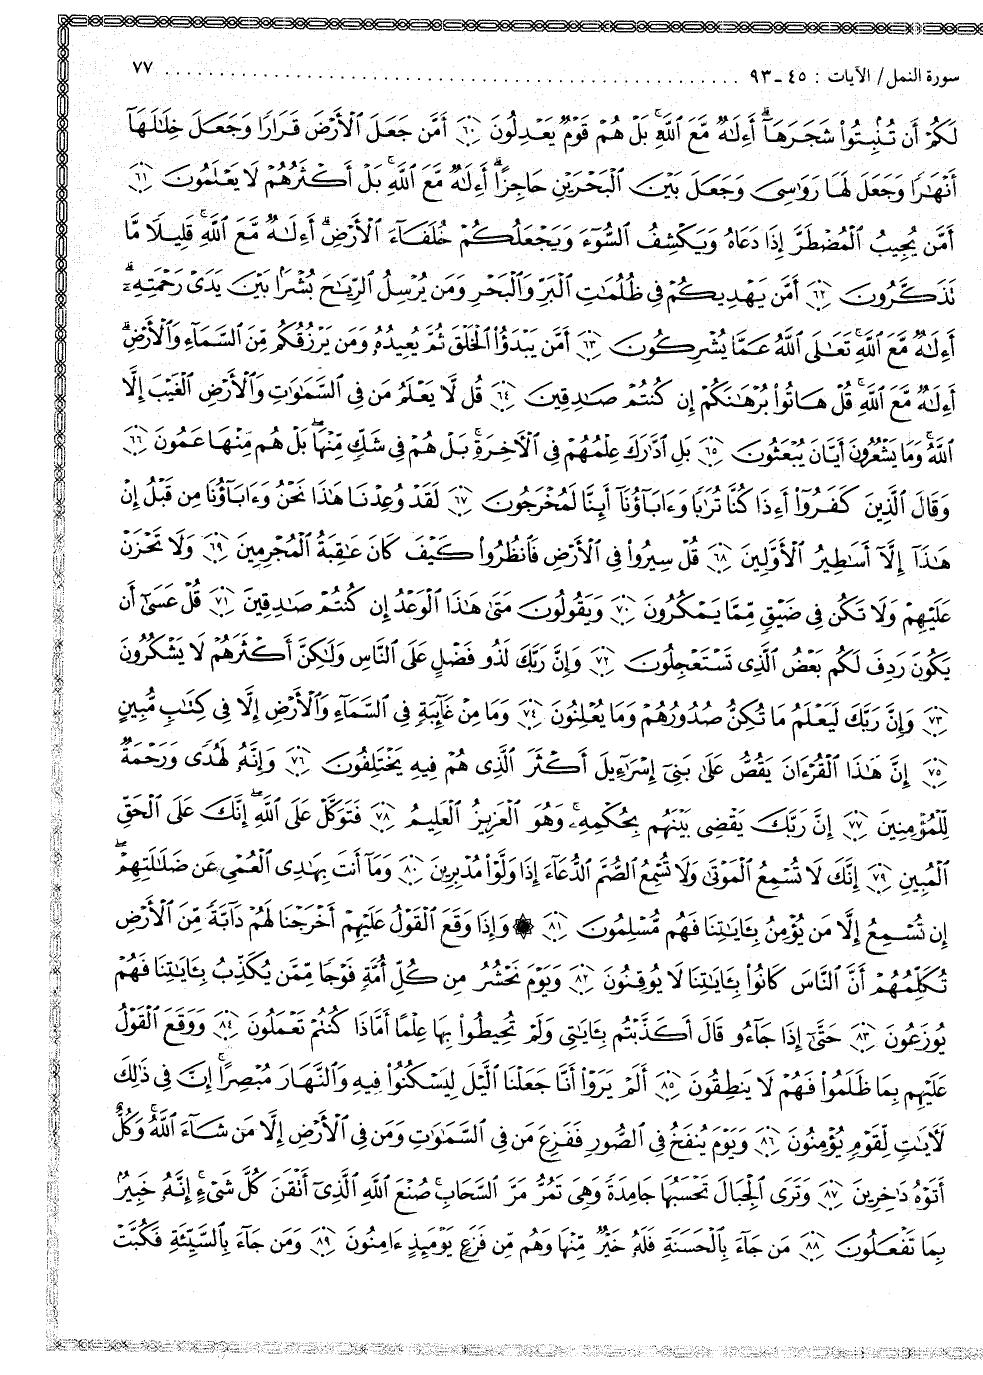 سورة النمل/ الآيات : ٤٥ ـ ٩٣ ............................................................ ٧٧
لَكُمْ أَن تُنۢبِتُوا۟ شَجَرَهَآ ۗ أَءِلَـٰهٌ مَّعَ ٱللَّهِ ۚ بَلْ هُمْ قَوْمٌ يَعْدِلُونَ ﴿٦٠﴾ أَمَّن جَعَلَ ٱلْأَرْضَ قَرَارًا وَجَعَلَ خِلَـٰلَهَآ
أَنْهَـٰرًا وَجَعَلَ لَهَا رَوَٰسِىَ وَجَعَلَ بَيْنَ ٱلْبَحْرَيْنِ حَاجِزًا ۗ أَءِلَـٰهٌ مَّعَ ٱللَّهِ ۚ بَلْ أَكْثَرُهُمْ لَا يَعْلَمُونَ ﴿٦١﴾
أَمَّن يُجِيبُ ٱلْمُضْطَرَّ إِذَا دَعَاهُ وَيَكْشِفُ ٱلسُّوٓءَ وَيَجْعَلُكُمْ خُلَفَآءَ ٱلْأَرْضِ ۗ أَءِلَـٰهٌ مَّعَ ٱللَّهِ ۚ قَلِيلًا مَّا
تَذَكَّرُونَ ﴿٦٢﴾ أَمَّن يَهْدِيكُمْ فِى ظُلُمَـٰتِ ٱلْبَرِّ وَٱلْبَحْرِ وَمَن يُرْسِلُ ٱلرِّيَـٰحَ بُشْرًۢا بَيْنَ يَدَىْ رَحْمَتِهِۦٓ ۗ
أَءِلَـٰهٌ مَّعَ ٱللَّهِ ۚ تَعَـٰلَى ٱللَّهُ عَمَّا يُشْرِكُونَ ﴿٦٣﴾ أَمَّن يَبْدَؤُا۟ ٱلْخَلْقَ ثُمَّ يُعِيدُهُۥ وَمَن يَرْزُقُكُم مِّنَ ٱلسَّمَآءِ وَٱلْأَرْضِ ۗ
أَءِلَـٰهٌ مَّعَ ٱللَّهِ ۚ قُلْ هَاتُوا۟ بُرْهَـٰنَكُمْ إِن كُنتُمْ صَـٰدِقِينَ ﴿٦٤﴾ قُل لَّا يَعْلَمُ مَن فِى ٱلسَّمَـٰوَٰتِ وَٱلْأَرْضِ ٱلْغَيْبَ إِلَّا
ٱللَّهُ ۚ وَمَا يَشْعُرُونَ أَيَّانَ يُبْعَثُونَ ﴿٦٥﴾ بَلِ ٱدَّٰرَكَ عِلْمُهُمْ فِى ٱلْـَٔاخِرَةِ ۚ بَلْ هُمْ فِى شَكٍّ مِّنْهَا ۖ بَلْ هُم مِّنْهَا عَمُونَ ﴿٦٦﴾
وَقَالَ ٱلَّذِينَ كَفَرُوٓا۟ أَءِذَا كُنَّا تُرَٰبًا وَءَابَآؤُنَآ أَئِنَّا لَمُخْرَجُونَ ﴿٦٧﴾ لَقَدْ وُعِدْنَا هَـٰذَا نَحْنُ وَءَابَآؤُنَا مِن قَبْلُ إِنْ
هَـٰذَآ إِلَّآ أَسَـٰطِيرُ ٱلْأَوَّلِينَ ﴿٦٨﴾ قُلْ سِيرُوا۟ فِى ٱلْأَرْضِ فَٱنظُرُوا۟ كَيْفَ كَانَ عَـٰقِبَةُ ٱلْمُجْرِمِينَ ﴿٦٩﴾ وَلَا تَحْزَنْ
عَلَيْهِمْ وَلَا تَكُن فِى ضَيْقٍ مِّمَّا يَمْكُرُونَ ﴿٧٠﴾ وَيَقُولُونَ مَتَىٰ هَـٰذَا ٱلْوَعْدُ إِن كُنتُمْ صَـٰدِقِينَ ﴿٧١﴾ قُلْ عَسَىٰٓ أَن
يَكُونَ رَدِفَ لَكُم بَعْضُ ٱلَّذِى تَسْتَعْجِلُونَ ﴿٧٢﴾ وَإِنَّ رَبَّكَ لَذُو فَضْلٍ عَلَى ٱلنَّاسِ وَلَـٰكِنَّ أَكْثَرَهُمْ لَا يَشْكُرُونَ
﴿٧٣﴾ وَإِنَّ رَبَّكَ لَيَعْلَمُ مَا تُكِنُّ صُدُورُهُمْ وَمَا يُعْلِنُونَ ﴿٧٤﴾ وَمَا مِنْ غَآئِبَةٍ فِى ٱلسَّمَآءِ وَٱلْأَرْضِ إِلَّا فِى كِتَـٰبٍ مُّبِينٍ
﴿٧٥﴾ إِنَّ هَـٰذَا ٱلْقُرْءَانَ يَقُصُّ عَلَىٰ بَنِىٓ إِسْرَٰٓءِيلَ أَكْثَرَ ٱلَّذِى هُمْ فِيهِ يَخْتَلِفُونَ ﴿٧٦﴾ وَإِنَّهُۥ لَهُدًى وَرَحْمَةٌ
لِّلْمُؤْمِنِينَ ﴿٧٧﴾ إِنَّ رَبَّكَ يَقْضِى بَيْنَهُم بِحُكْمِهِۦ ۚ وَهُوَ ٱلْعَزِيزُ ٱلْعَلِيمُ ﴿٧٨﴾ فَتَوَكَّلْ عَلَى ٱللَّهِ ۖ إِنَّكَ عَلَى ٱلْحَقِّ
ٱلْمُبِينِ ﴿٧٩﴾ إِنَّكَ لَا تُسْمِعُ ٱلْمَوْتَىٰ وَلَا تُسْمِعُ ٱلصُّمَّ ٱلدُّعَآءَ إِذَا وَلَّوْا۟ مُدْبِرِينَ ﴿٨٠﴾ وَمَآ أَنتَ بِهَـٰدِى ٱلْعُمْىِ عَن ضَلَـٰلَتِهِمْ ۖ
إِن تُسْمِعُ إِلَّا مَن يُؤْمِنُ بِـَٔايَـٰتِنَا فَهُم مُّسْلِمُونَ ﴿٨١﴾ ۞ وَإِذَا وَقَعَ ٱلْقَوْلُ عَلَيْهِمْ أَخْرَجْنَا لَهُمْ دَآبَّةً مِّنَ ٱلْأَرْضِ
تُكَلِّمُهُمْ أَنَّ ٱلنَّاسَ كَانُوا۟ بِـَٔايَـٰتِنَا لَا يُوقِنُونَ ﴿٨٢﴾ وَيَوْمَ نَحْشُرُ مِن كُلِّ أُمَّةٍ فَوْجًا مِّمَّن يُكَذِّبُ بِـَٔايَـٰتِنَا فَهُمْ
يُوزَعُونَ ﴿٨٣﴾ حَتَّىٰٓ إِذَا جَآءُو قَالَ أَكَذَّبْتُم بِـَٔايَـٰتِى وَلَمْ تُحِيطُوا۟ بِهَا عِلْمًا أَمَّاذَا كُنتُمْ تَعْمَلُونَ ﴿٨٤﴾ وَوَقَعَ ٱلْقَوْلُ
عَلَيْهِم بِمَا ظَلَمُوا۟ فَهُمْ لَا يَنطِقُونَ ﴿٨٥﴾ أَلَمْ يَرَوْا۟ أَنَّا جَعَلْنَا ٱلَّيْلَ لِيَسْكُنُوا۟ فِيهِ وَٱلنَّهَارَ مُبْصِرًا ۚ إِنَّ فِى ذَٰلِكَ
لَـَٔايَـٰتٍ لِّقَوْمٍ يُؤْمِنُونَ ﴿٨٦﴾ وَيَوْمَ يُنفَخُ فِى ٱلصُّورِ فَفَزِعَ مَن فِى ٱلسَّمَـٰوَٰتِ وَمَن فِى ٱلْأَرْضِ إِلَّا مَن شَآءَ ٱللَّهُ ۚ وَكُلٌّ
أَتَوْهُ دَٰخِرِينَ ﴿٨٧﴾ وَتَرَى ٱلْجِبَالَ تَحْسَبُهَا جَامِدَةً وَهِىَ تَمُرُّ مَرَّ ٱلسَّحَابِ ۚ صُنْعَ ٱللَّهِ ٱلَّذِىٓ أَتْقَنَ كُلَّ شَىْءٍ ۚ إِنَّهُۥ خَبِيرٌۢ
بِمَا تَفْعَلُونَ ﴿٨٨﴾ مَن جَآءَ بِٱلْحَسَنَةِ فَلَهُۥ خَيْرٌ مِّنْهَا وَهُم مِّن فَزَعٍ يَوْمَئِذٍ ءَامِنُونَ ﴿٨٩﴾ وَمَن جَآءَ بِٱلسَّيِّئَةِ فَكُبَّتْ